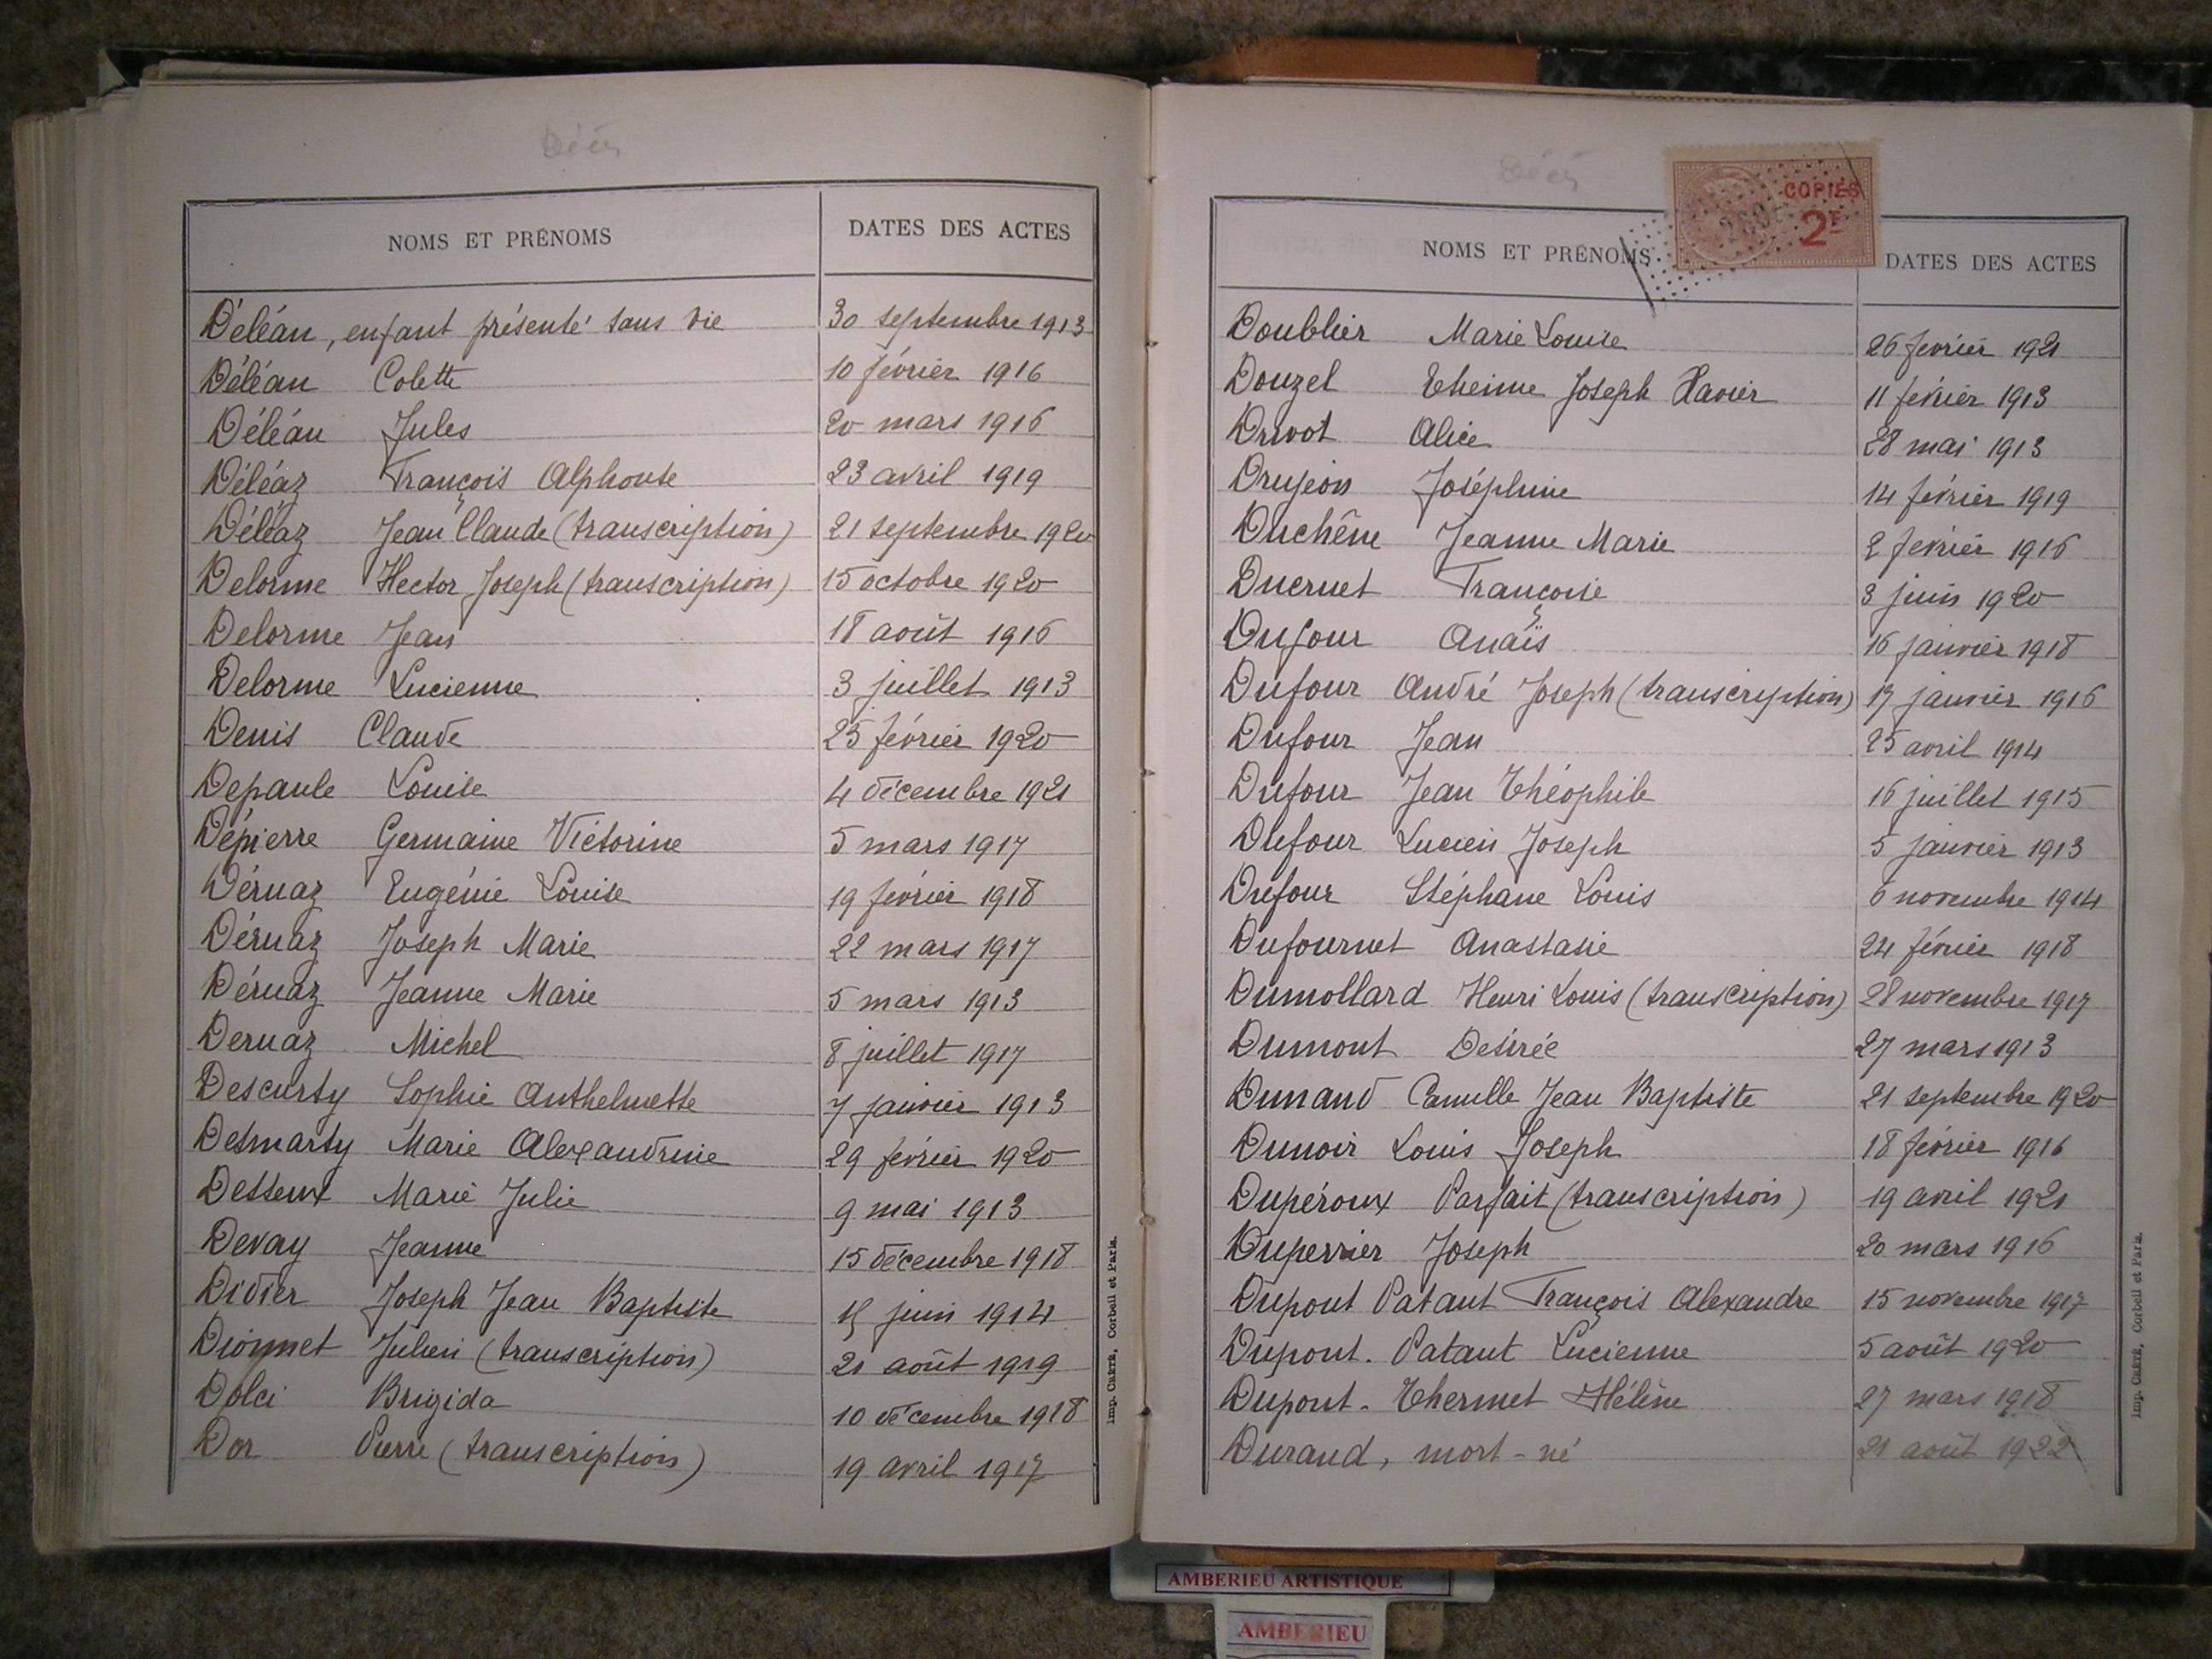 Décès
NOMS ET PRÉNOMS DATES DES ACTES
Déléan, enfant présenté sans vie 30 septembre 1913
Déléan Colette 10 février 1916
Déléan Jules 20 mars 1916
Déléaz François Alphonse 23 avril 1919
Déléaz Jean Claude (transcription) 21 septembre 1920
Delorme Hector Joseph (transcription) 15 octobre 1920
Delorme Jean 18 août 1916
Delorme Lucienne 3 juillet 1913
Denis Claude 25 février 1920
Depaule Louise 4 décembre 1921
Dépierre Germaine Victorine 5 mars 1917
Déruaz Eugénie Louise 19 février 1918
Déruaz Joseph Marie 22 mars 1917
Déruaz Jeanne Marie 5 mars 1913
Deruaz Michel 8 juillet 1917
Descurty Sophie Anthelmette 7 janvier 1913
Desmarty Marie Alexandrine 29 février 1920
Desseux Marie Julie 9 mai 1913
Devay Jeanne 15 décembre 1918
Didier Joseph Jean Baptiste juin 1914
Dionnet Julien (transcription) 21 août 1919
Dolci Brigida 10 décembre 1918
Dor Pierre (transcription) 19 avril 1917
Imp. CRÉTÉ, Corbeil et Paris.
Décès
COPIES
2F
NOMS ET PRÉNOMS DATES DES ACTES
Doublier Marie Louise 26 fevrier 1921
Douzel Etienne Joseph Xavier 11 février 1913
Drivot Alice 28 mai 1913
Drujeon Joséphine 14 février 1919
Duchêne Jeanne Marie 2 fevrier 1916
Ducruet Françoise 3 juin 1920
Dufour Anaïs 16 janvier 1918
Dufour André Joseph (transcription) 17 janvier 1916
Dufour Jean 25 avril 1914
Dufour Jean Théophile 16 juillet 1915
Dufour Lucien Joseph 5 janvier 1913
Dufour Stéphane Louis 6 novembre 1914
Dufournet Anastasie 24 février 1918
Dumollard Henri Louis (transcription) 28 novembre 1917
Dumont Desirée 27 mars 1913
Dunand Camille Jean Baptiste 21 septembre 1920
Dunoir Louis Joseph 18 février 1916
Dupéroux Parfait (transcription) 19 avril 1921
Duperrier Joseph 20 mars 1916
Dupont Patant François Alexandre 15 novembre 1917
Dupont. Patant Lucienne 5 août 1920
Dupont. Thermet Hélène 27 mars 1918
Durand, mort-né 21 août 1922
Imp. CRÉTÉ, Corbeil et Paris.
AMBERIEU ARTISTIQUE
AMBERIEU